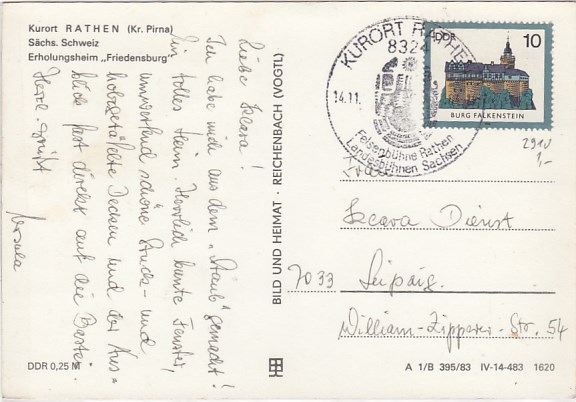 Kurort RATHEN (Kr. Pirna)
Sächs. Schweiz
Erholungsheim „Friedensburg"
Liebe Iscara!
Ich habe mich aus dem „Staub" gemacht!
Ein tolles Heim. Herrlich bunte Fenster,
wunderschöne Stuck- und
holzgetäfelte Decken und der Aus=
blick fast direkt auf die Bastei.
Herzl. grüßt
Ursula
DDR 0,25 M
BILD UND HEIMAT · REICHENBACH (VOGTL)
KURORT RATHEN
8324
14.11.
Felsenbühne Rathen
Landesbühnen Sachsen
DDR 10
BURG FALKENSTEIN
2910
1,-
Frau
Iscara Dienst
7033 Leipzig
William-Zipperer-Str. 54
A 1/B 395/83 IV-14-483 1620